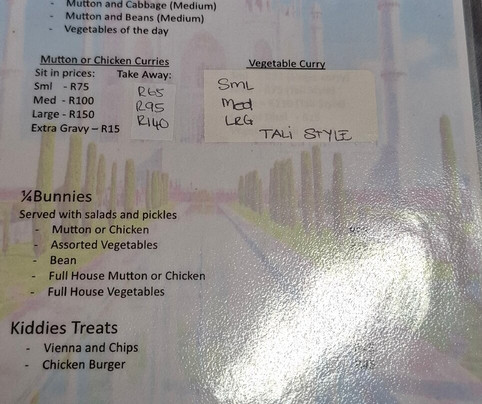 - Mutton and Cabbage (Medium)
- Mutton and Beans (Medium)
- Vegetables of the day
Mutton or Chicken Curries
Sit in prices: Take Away:
Sml - R75 R65
Med - R100 R95
Large - R150 R140
Extra Gravy – R15
Vegetable Curry
SML
Med
LRG
TALI STYLE
¼Bunnies
Served with salads and pickles
- Mutton or Chicken
- Assorted Vegetables
- Bean
- Full House Mutton or Chicken
- Full House Vegetables
Kiddies Treats
- Vienna and Chips
- Chicken Burger